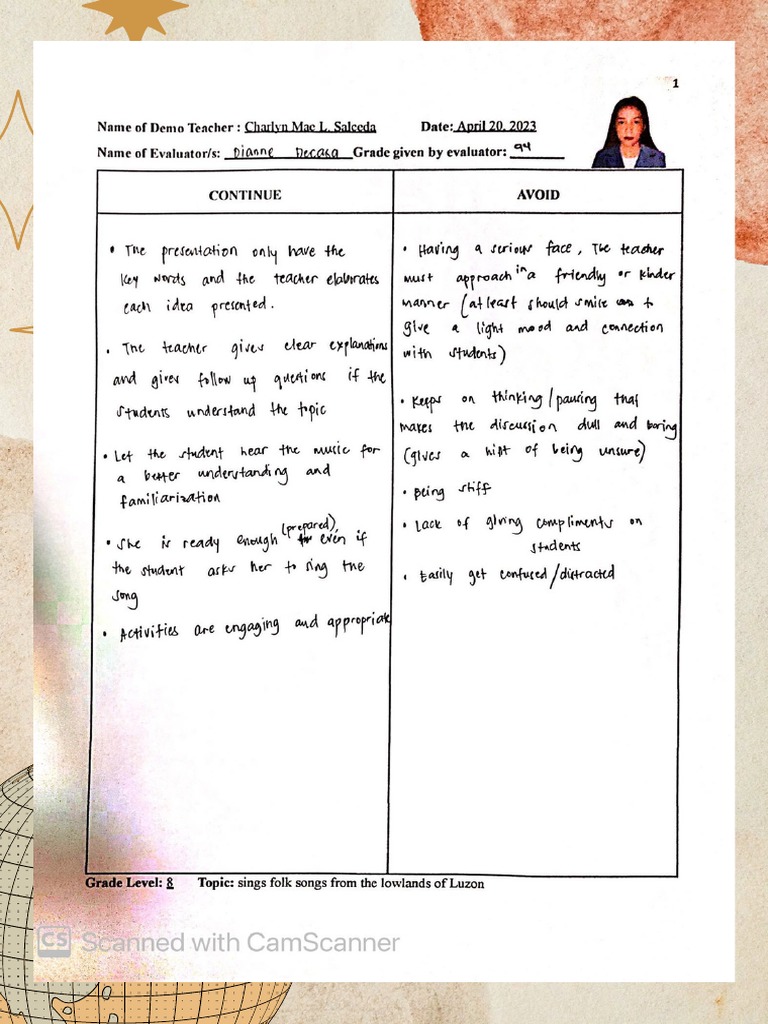 1
Name of Demo Teacher : Charlyn Mae L. Salceda Date: April 20, 2023
Name of Evaluator/s: Dianne Decasa Grade given by evaluator: 94
CONTINUE
• The presentation only have the
key words and the teacher elaborates
each idea presented.
• The teacher gives clear explanations
and gives follow up questions if the
students understand the topic
• Let the student hear the music for
a better understanding and
familiarization
• She is ready enough (prepared), even if
the student asks her to sing the
song
• Activities are engaging and appropriate
AVOID
• Having a serious face, The teacher
must approach in a friendly or kinder
manner (at least should smile to
give a light mood and connection
with students)
• Keeps on thinking/pausing that
makes the discussion dull and boring
(gives a hint of being unsure)
• Being stiff
• Lack of giving compliments on
students
• Easily get confused/distracted
Grade Level: 8 Topic: sings folk songs from the lowlands of Luzon
CS Scanned with CamScanner